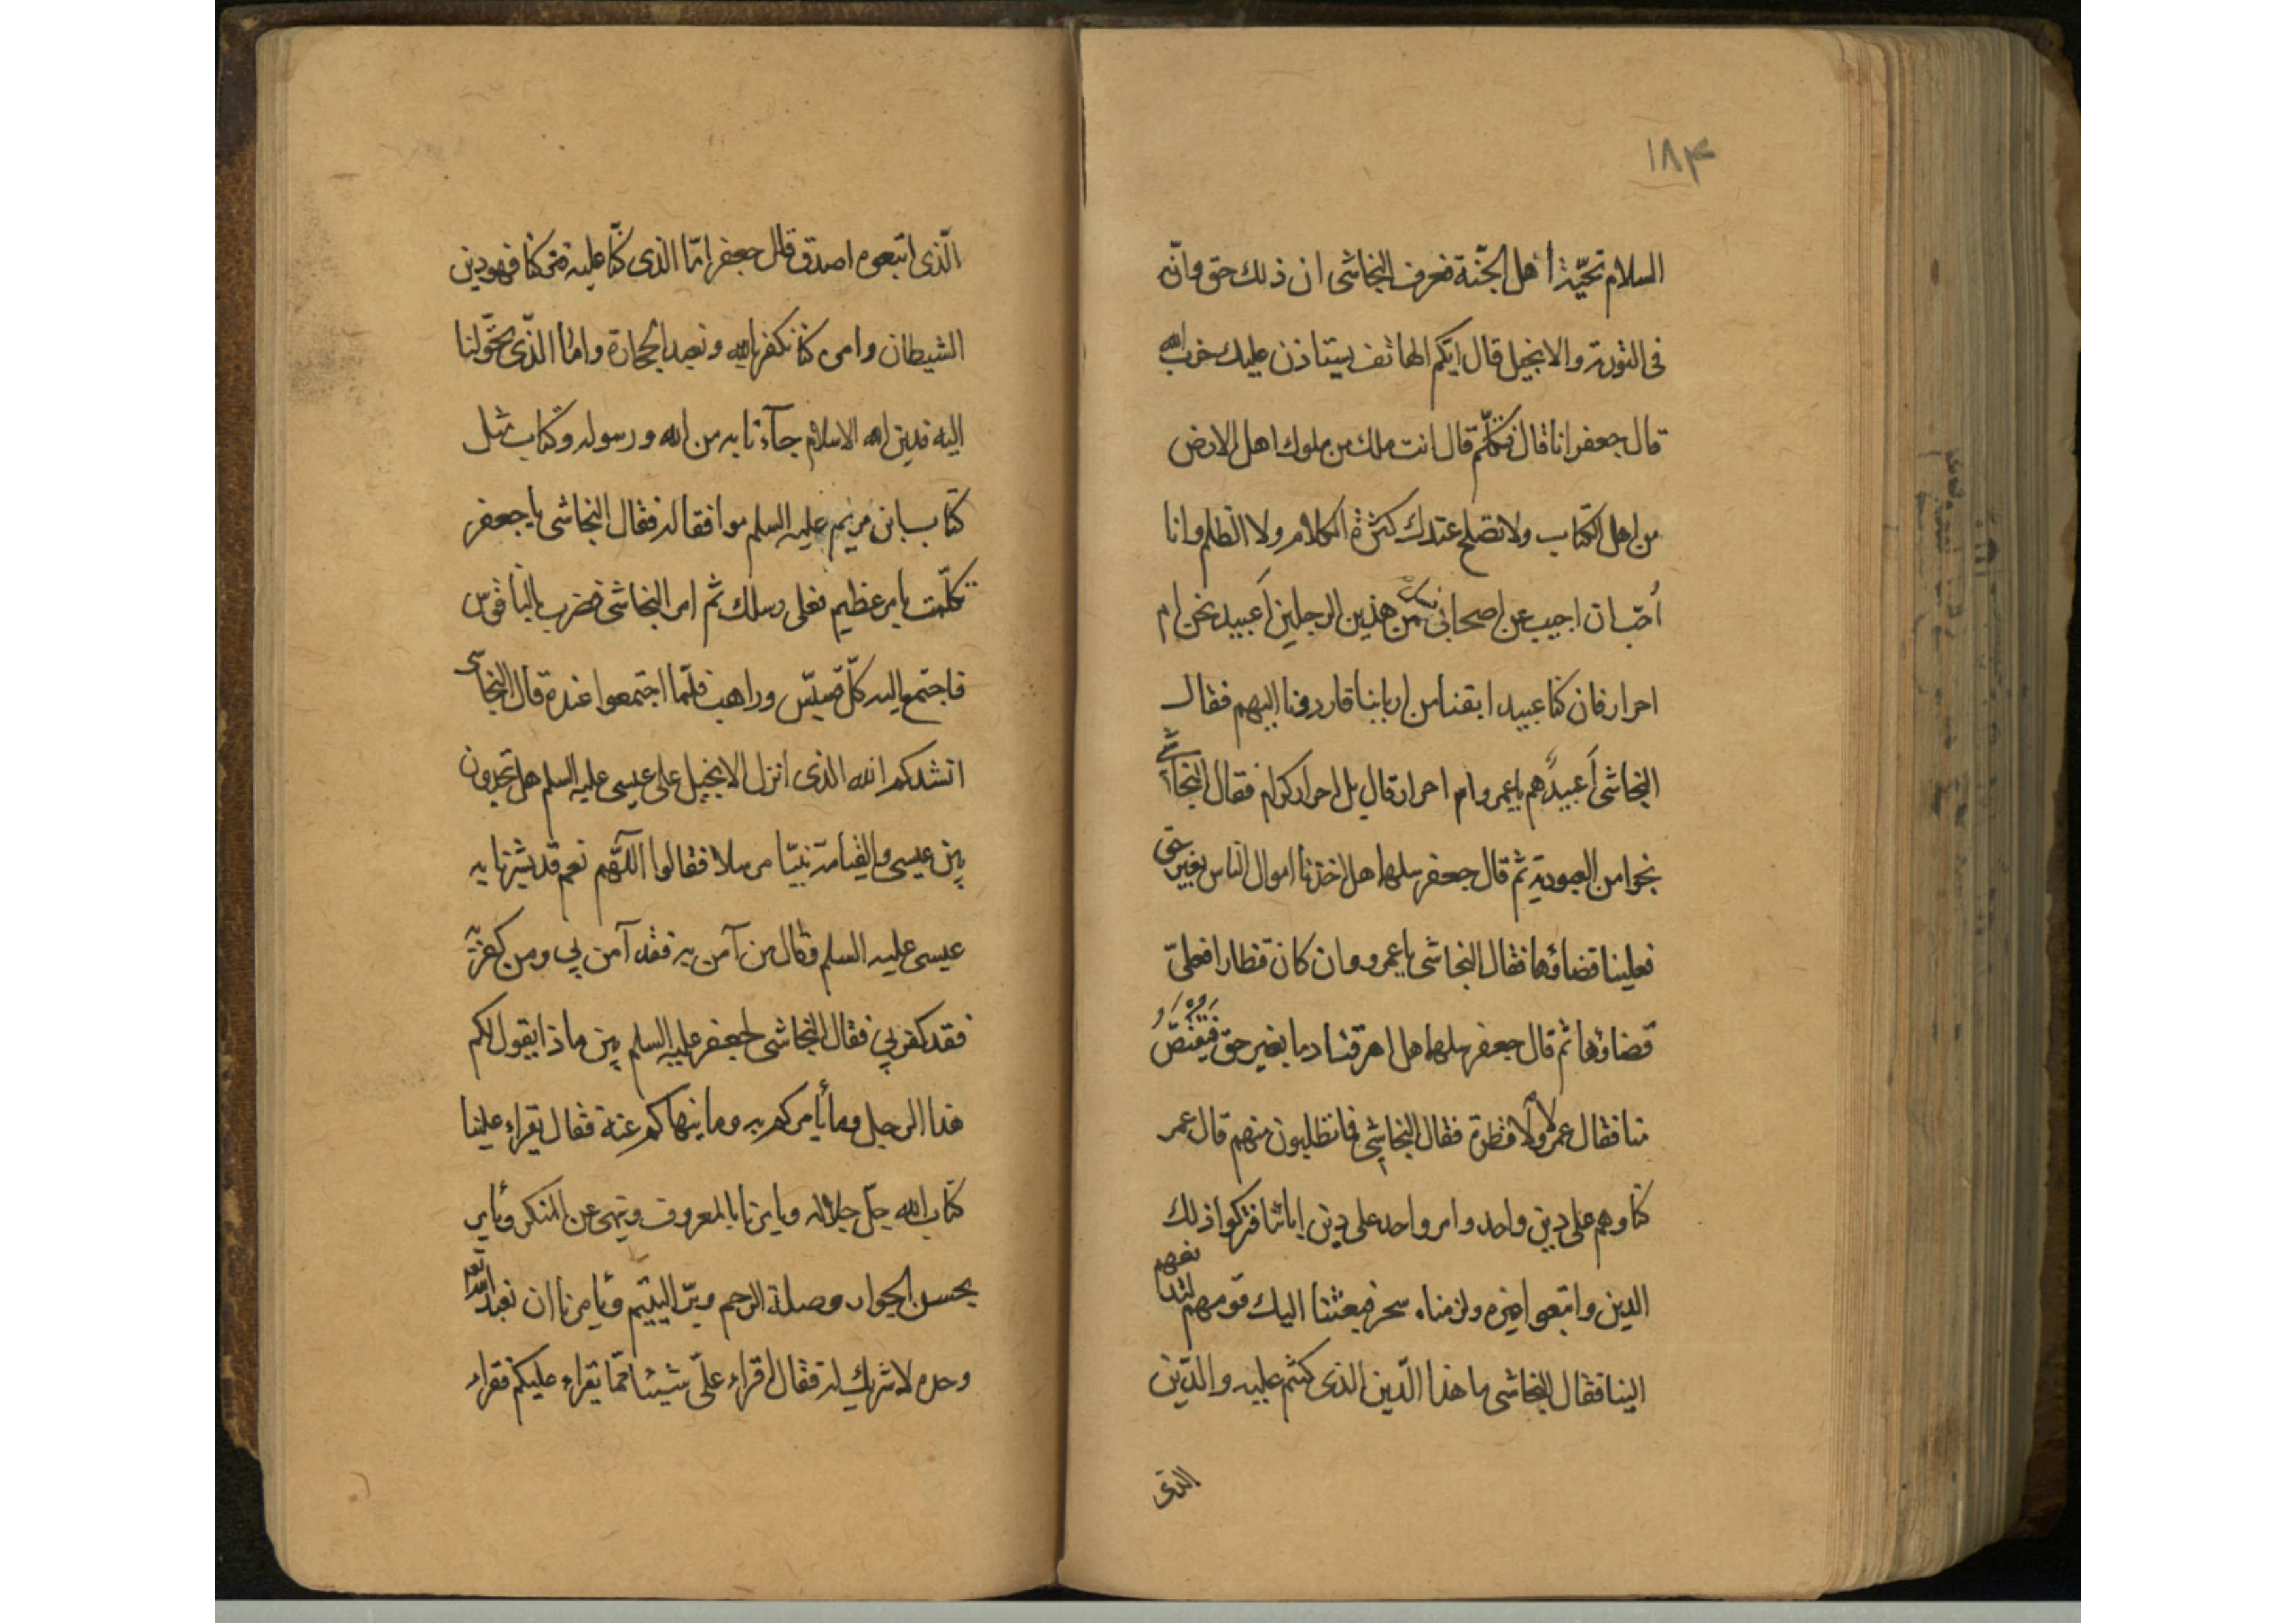 ١٨٣
السلام تحيّة أهل الجنّة فعرف النجاشى ان ذلك حق وانّه
فى التورية والانجيل قال ايّكم الهاتف يستاذن عليك حزب الله
قال جعفر انا قال فتكلّم قال انت ملك من ملوك اهل الارض
من اهل الكتاب ولا تصلح عندك كثرة الكلام ولا الظلم وانا
أحبّ ان اجيب عن اصحابى من هذين الرجلين أعبيد نحن ام
احرار فان كنا عبيد ابقنا من اربابنا فارددنا اليهم فقال
النجاشى أعبيدٌ هم يا عمرو ام احرار قال بل احرار كرام فقال النجاشى
نجوا من العبودية ثم قال جعفر سلهما هل اخذنا اموال الناس بغير حق
فعلينا قضاؤها فقال النجاشى يا عمرو وان كان قنطارا فعلىّ
قضاؤها ثم قال جعفر سلهما هل اهرقنا دما بغير حق فيقتصّ
منا فقال عمرو لا ولا قطرة فقال النجاشى فما تطلبون منهم قال عمر
كنا وهم على دين واحد وامر واحد على دين ابائنا فتركوا ذلك
الدين واتبعوا غيره ولزمناه نحن فبعثنا اليك قومهم لتدفعهم
الينا فقال النجاشى ما هذا الدّين الذى كنتم عليه والدّين
الذى
الّذى اتبعوه اصدق قال جعفر امّا الذى كنّا عليه فتركنا فهو دين
الشيطان وامره كنا نكفر بالله ونعبد الحجارة وامّا الذّى تحوّلنا
اليه فدين الله الاسلام جآءنا به من الله ورسوله وكتاب مثل
كتاب ابن مريم عليه السلم موافقا له فقال النجاشى يا جعفر
تكلّمت بامر عظيم فعلى رسلك ثم امر النجاشى فضرب بالناقوس
فاجتمع اليه كلّ قسيّس وراهب فلمّا اجتمعوا عنده قال النجاشى
انشدكم الله الذى انزل الانجيل على عيسى عليه السلم هل تجدون
بين عيسى والقيامة نبيّا مرسلا فقالوا اللّهم نعم قد بشرنا به
عيسى عليه السلم وقال من آمن به فقد آمن بي ومن كفر به
فقد كفر بي فقال النجاشى لجعفر عليه السلم بين ماذا يقول لكم
هذا الرجل وما يأمركم به وما ينهاكم عنه فقال يقراء علينا
كتاب الله جلّ جلاله ويامرنا بالمعروف وينهى عن المنكر ويأمر
بحسن الجوار وصلة الرحم وبرّ اليتيم ويأمرنا ان نعبد الله تعه
وحده لا شريك له فقال اقراء علىّ شيئا ممّا يقراء عليكم فقراء